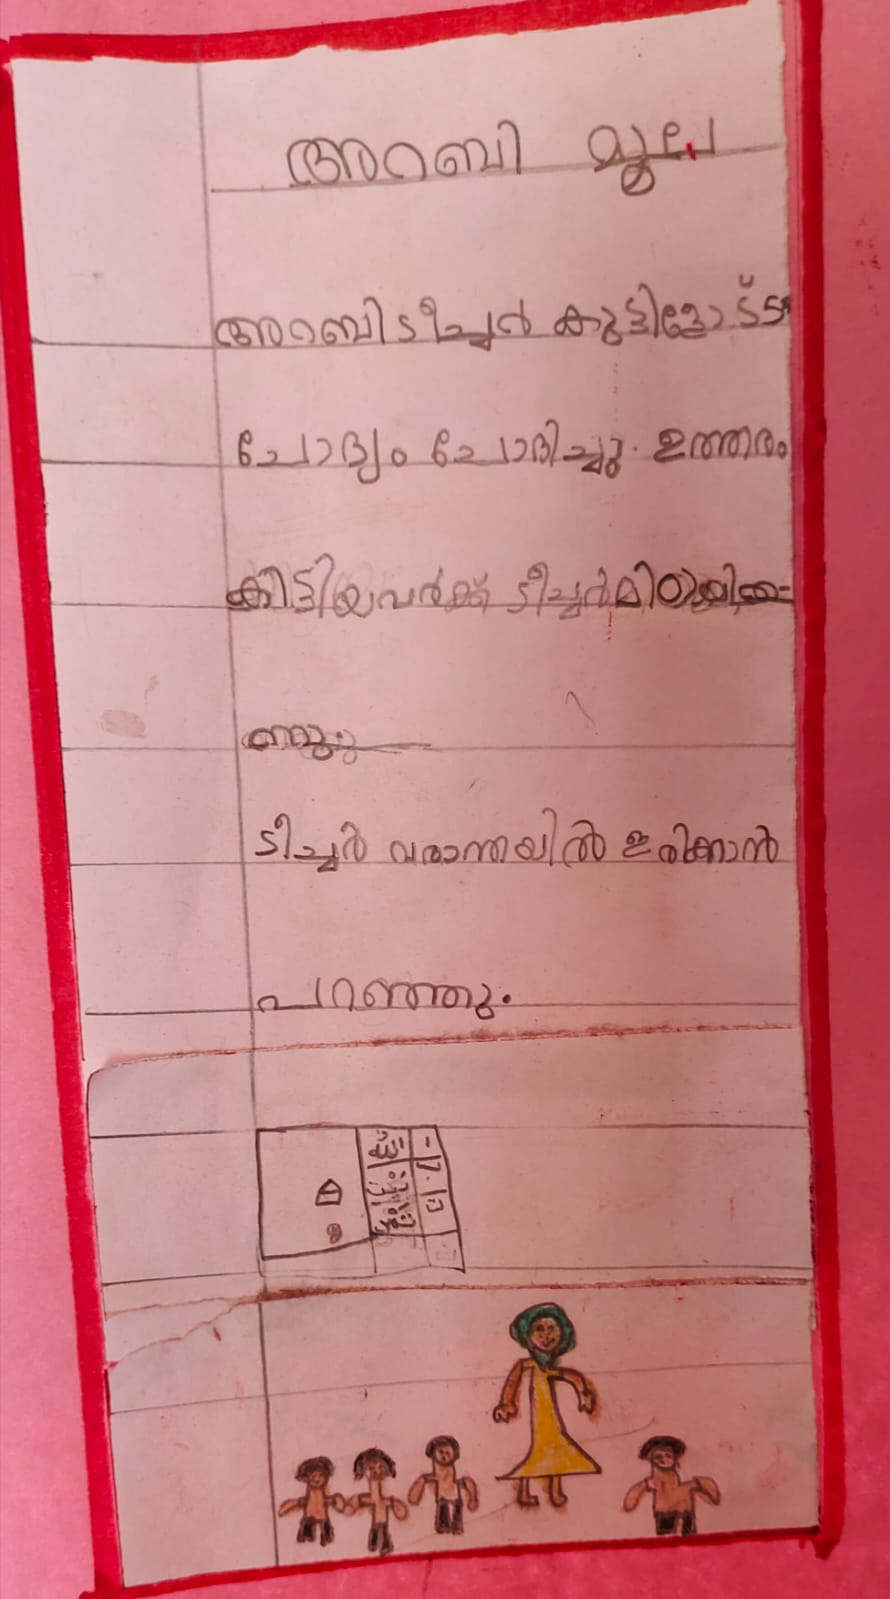 അറബി മൂല
അറബി ടീച്ചർ കുട്ടിളോട്
ചോദ്യം ചോദിച്ചു. ഉത്തരം
കിട്ടിയവർക്ക് ടീച്ചർ മിഠായി
ടീച്ചർ വരാന്തയിൽ ഇരിക്കാൻ
പറഞ്ഞു.